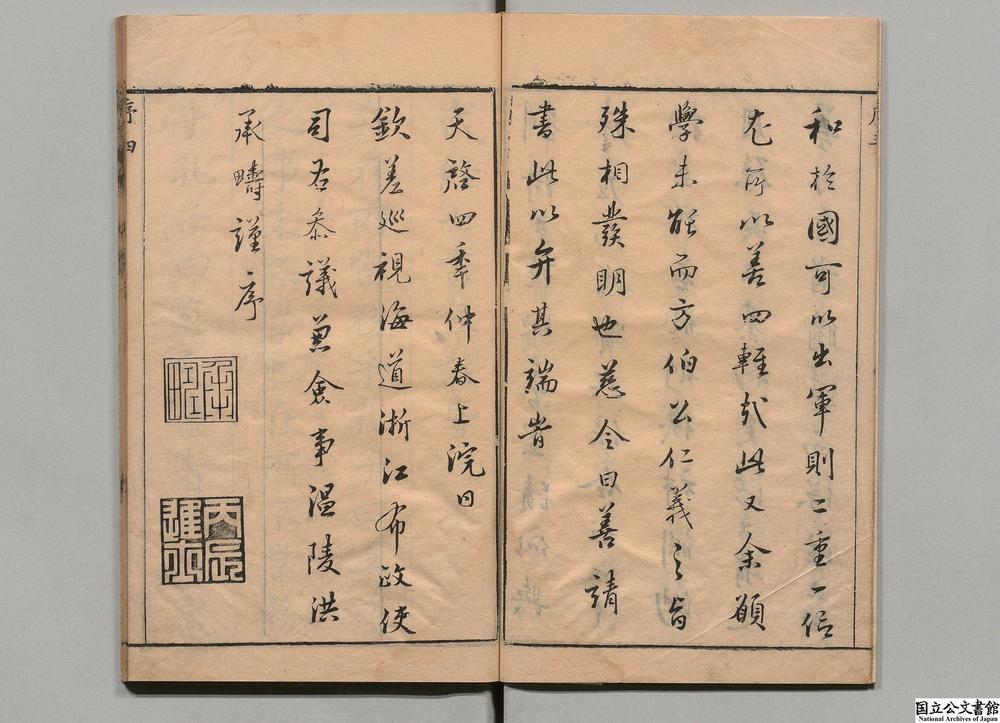 和於國可以出軍則二重一信
尤所以善四輕哉此又余願
學未能而方伯公仁義之旨
殊相發明也慈令曰善請
書此以弁其端
天啓四年仲春上浣日
欽差巡視海道浙江布政使
司右參議兼僉事溫陵洪
承疇謹序
序四
丙辰進士
国立公文書館
National Archives of Japan